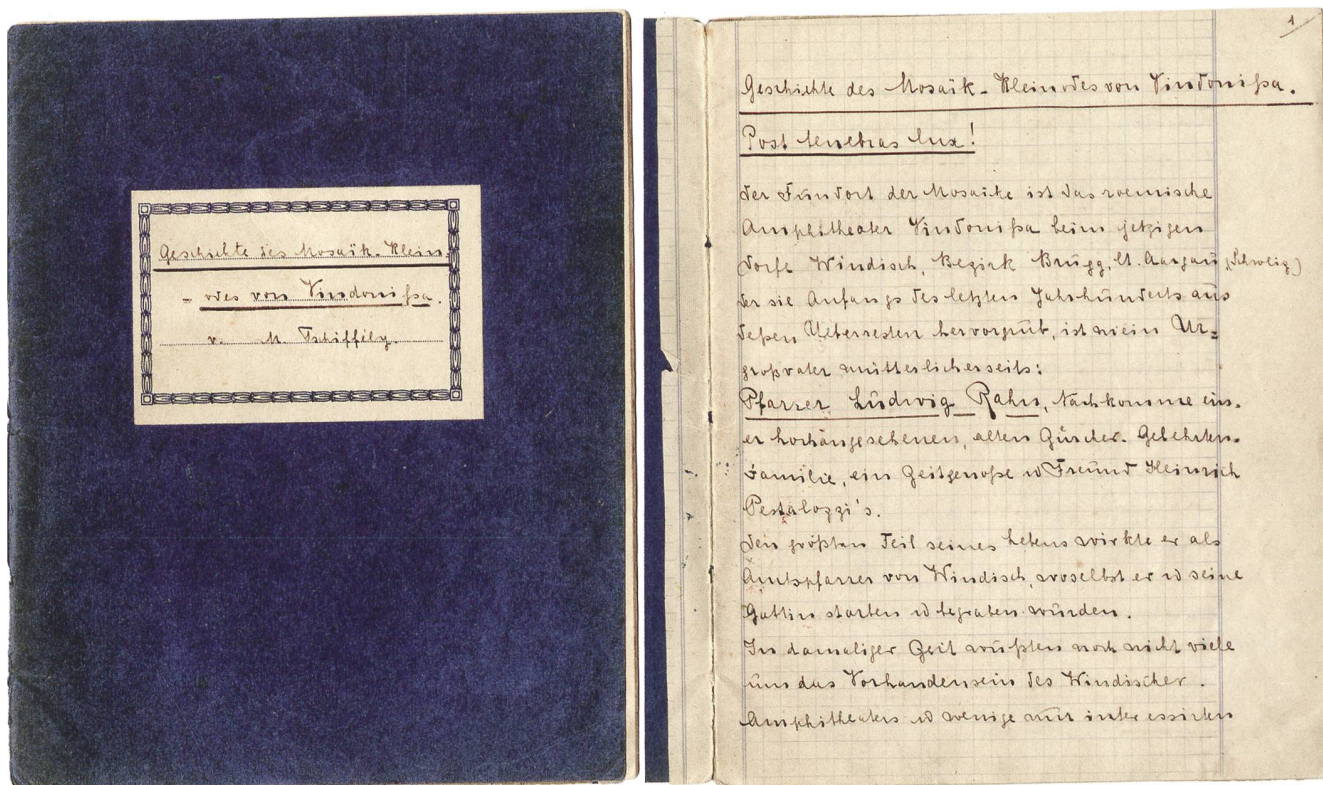 Geschichte des Mosaïk-Klein-
- odes von Vindonißa.
v. M. Tschiffély.
1
Geschichte des Mosaïk-Kleinodes von Vindonißa.
Post tenebras lux!
Der Fundort der Mosaïke ist das roemische
Amphitheater Vindonißa beim jetzigen
Dorfe Windisch, Bezirk Brugg, Ct. Aargau, (Schweiz)
Der sie Anfangs des letzten Jahrhunderts aus
deßen Ueberresten hervorgrub, ist mein Ur-
großvater mütterlicherseits:
Pfarrer Ludwig Rahn, Nachkomme ein-
er hochangesehenen, alten Zürcher-Gelehrten-
Familie, ein Zeitgenoße u Freund Heinrich
Pestalozzi's.
Den größten Teil seines Lebens wirkte er als
Amtspfarrer von Windisch, woselbst er u seine
Gattin starben u begraben wurden.
In damaliger Zeit wußten noch nicht viele
um das Vorhandensein des Windischer-
Amphitheaters u wenige nur interessirten